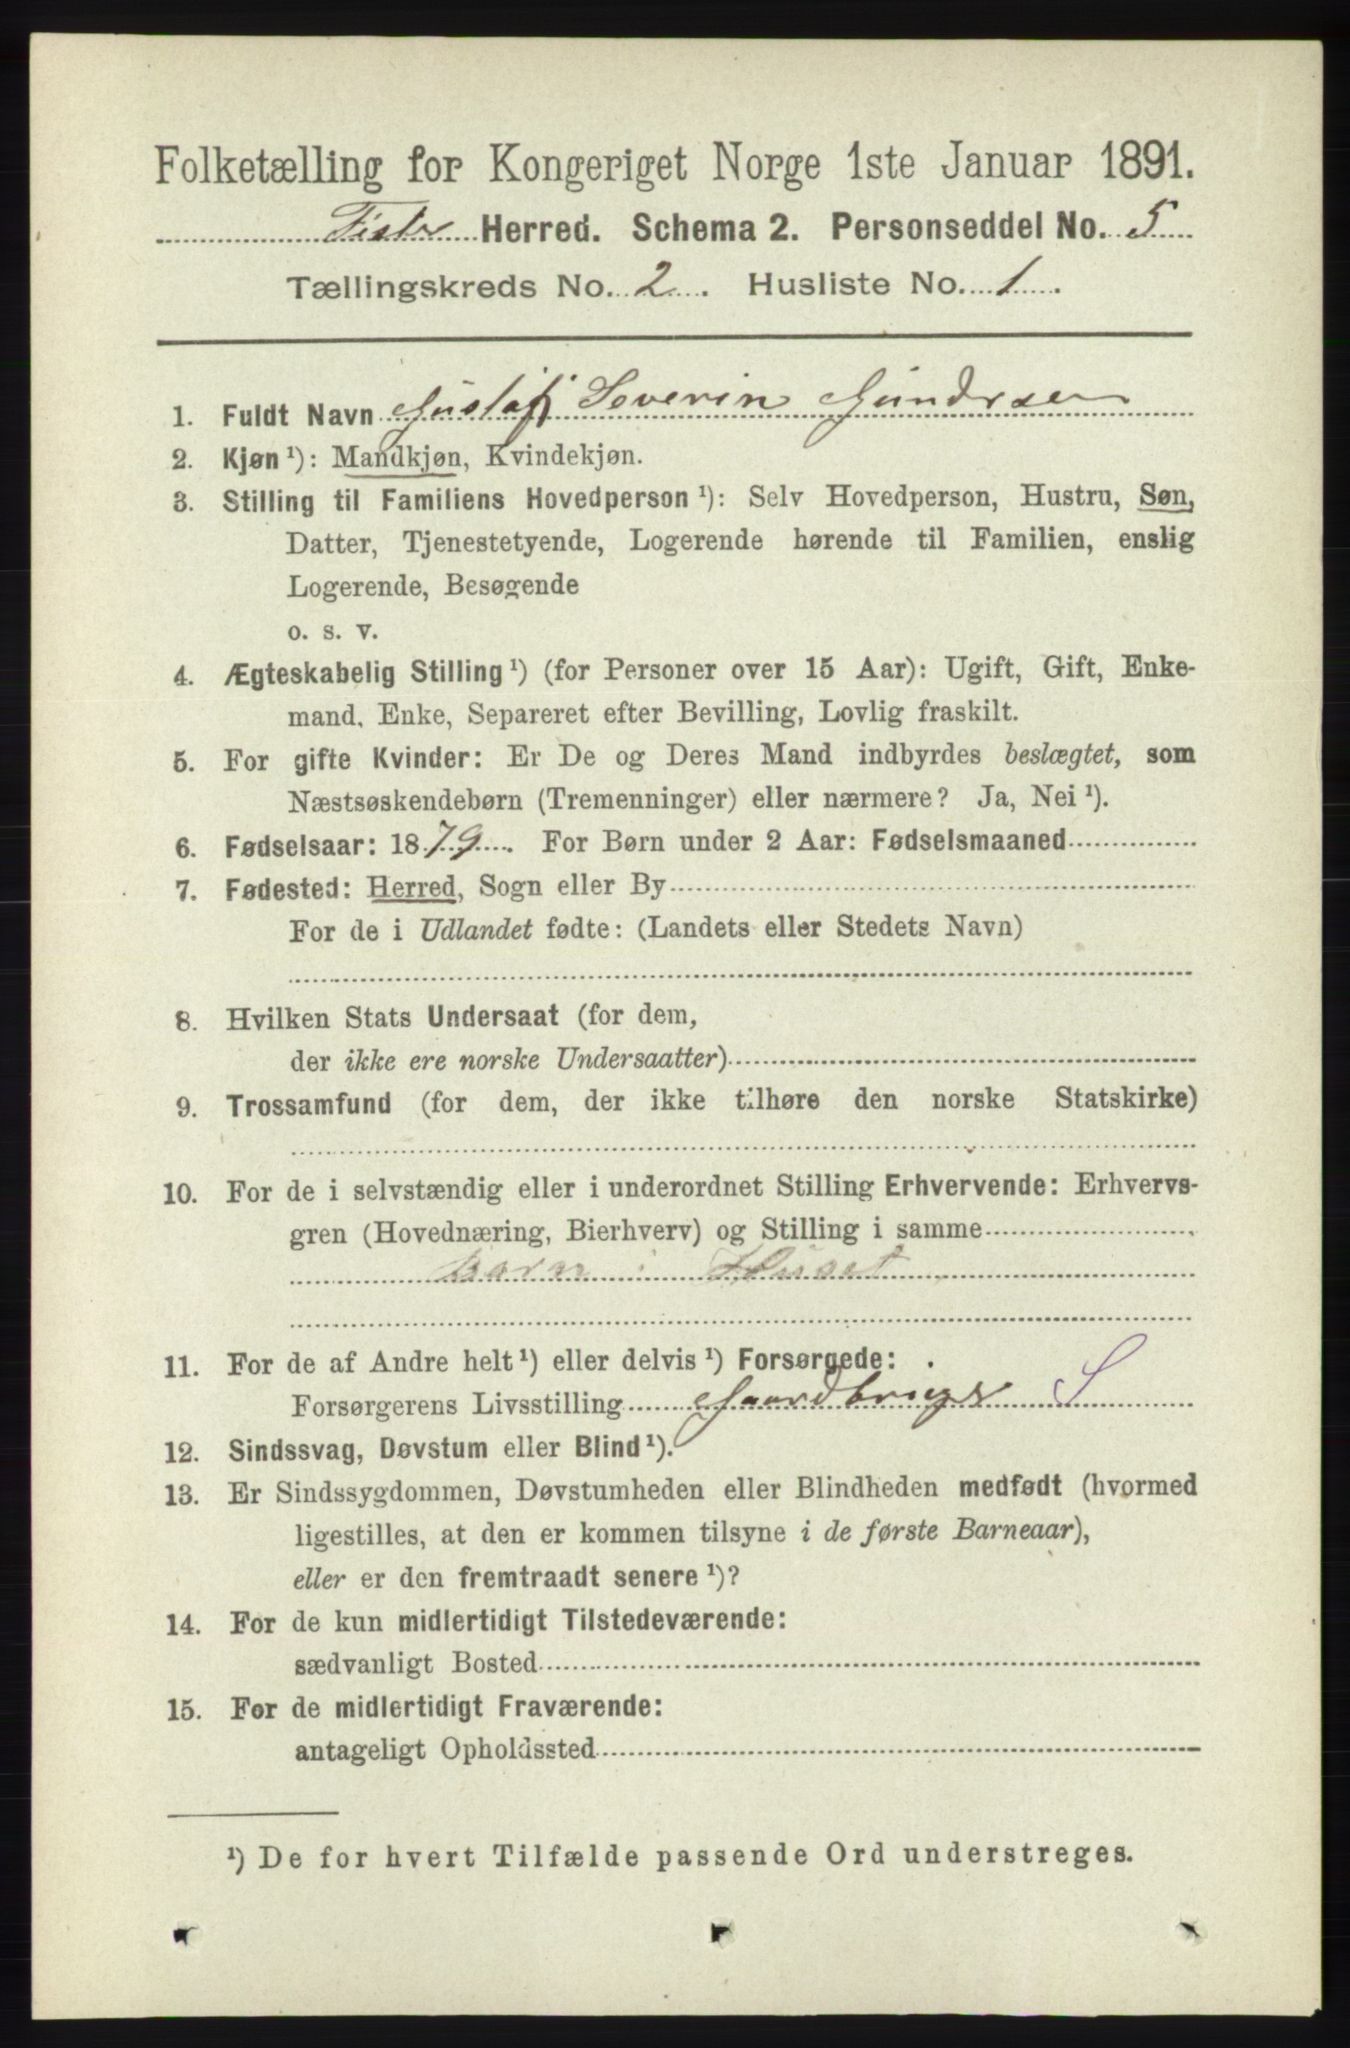 Folketælling for Kongeriget Norge 1ste Januar 1891.
Fister Herred. Schema 2. Personseddel No. 5
Tællingskreds No. 2. Husliste No. 1.
1. Fuldt Navn Gustaf Severin Gundersen
2. Kjøn ¹): Mandkjøn, Kvindekjøn.
3. Stilling til Familiens Hovedperson ¹): Selv Hovedperson, Hustru, Søn,
Datter, Tjenestetyende, Logerende hørende til Familien, enslig
Logerende, Besøgende
o. s. v.
4. Ægteskabelig Stilling ¹) (for Personer over 15 Aar): Ugift, Gift, Enke-
mand, Enke, Separeret efter Bevilling, Lovlig fraskilt.
5. For gifte Kvinder: Er De og Deres Mand indbyrdes beslægtet, som
Næstsøskendebørn (Tremenninger) eller nærmere? Ja, Nei ¹).
6. Fødselsaar: 1879. For Børn under 2 Aar: Fødselsmaaned
7. Fødested: Herred, Sogn eller By
For de i Udlandet fødte: (Landets eller Stedets Navn)
8. Hvilken Stats Undersaat (for dem,
der ikke ere norske Undersaatter)
9. Trossamfund (for dem, der ikke tilhøre den norske Statskirke)
10. For de i selvstændig eller i underordnet Stilling Erhvervende: Erhvervs-
gren (Hovednæring, Bierhverv) og Stilling i samme
Barn i Huset
11. For de af Andre helt ¹) eller delvis ¹) Forsørgede:
Forsørgerens Livsstilling Gaardbruger S
12. Sindssvag, Døvstum eller Blind ¹).
13. Er Sindssygdommen, Døvstumheden eller Blindheden medfødt (hvormed
ligestilles, at den er kommen tilsyne i de første Barneaar),
eller er den fremtraadt senere ¹)?
14. For de kun midlertidigt Tilstedeværende:
sædvanligt Bosted
15. For de midlertidigt Fraværende:
antageligt Opholdssted
¹) De for hvert Tilfælde passende Ord understreges.